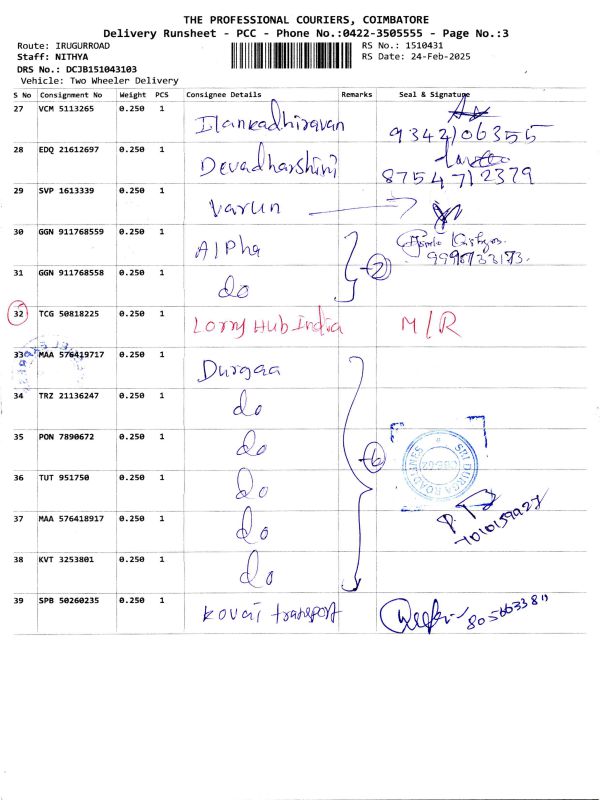 THE PROFESSIONAL COURIERS, COIMBATORE
Delivery Runsheet - PCC - Phone No.:0422-3505555 - Page No.:3
Route: IRUGURROAD
RS No.: 1510431
Staff: NITHYA
RS Date: 24-Feb-2025
DRS No.: DCJB151043103
Vehicle: Two Wheeler Delivery
S No Consignment No Weight PCS Consignee Details Remarks Seal & Signature
27 VCM 5113265 0.250 1 Ilankadhiravan
9342106355
28 EDQ 21612697 0.250 1 Devadharshini
8754712379
29 SVP 1613339 0.250 1 Varun
30 GGN 911768559 0.250 1 Alpha
2
31 GGN 911768558 0.250 1 do
32 TCG 50818225 0.250 1 Lorry Hub India M/R
33 MAA 576419717 0.250 1 Durgaa
34 TRZ 21136247 0.250 1 do
35 PON 7890672 0.250 1 do
6
SRI DURGA ROADLINES
36 TUT 951750 0.250 1 do
37 MAA 576418917 0.250 1 do
7010159927
38 KVT 3253801 0.250 1 do
39 SPB 50260235 0.250 1 kovai transport